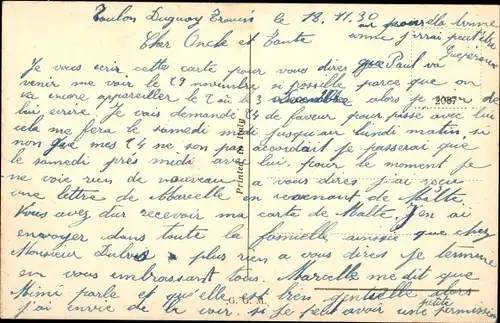 Toulon Duguay Trouin le 18.11.30
Cher Oncle et Tante
Je vous ecrir cette carte pour vous dires que Paul va
venir me voir le 29 novembre si possible parce que on
va encore appareiller le 2 ou le 3 decembre alors je de
lui ecrire Je vais demandé 24 de faveur pour pusse avec lui
cela me fera le samedi midi jusqu'au lundi matin, si
non que mes 24 ne son pas accordait je passerai que
le samedi près midi avec lui, pour le moment je
ne voie rien de nouveau a vous dires j'ai reçu
une lettre de Marcelle en venenant de Malte
Vous avez dur recevoir ma carte de Malte, J'en ai
envoyer dans toute la famielle aussie que chez
Monsieur Dubois plus rien a vous dires je termine
en vous embrassant tous. Marcelle me dit que
Mimi parle et quelle est bien gentielle alors
petite
j'ai envie de la voir, si je peut avoir une permission
2087
Printed in Italy
G. V. M.